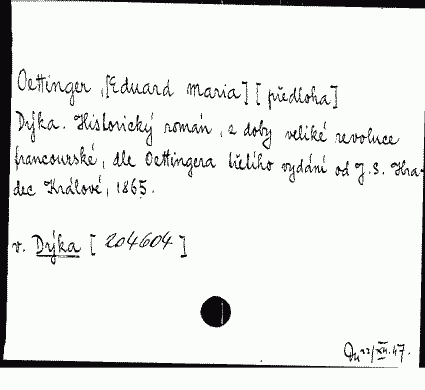 Oettinger, [Eduard Maria] [předloha]
Dýka. Historický román, z doby veliké revoluce
francouzské, dle Oettingera třetího vydání od J. S. Hra-
dec Králové, 1865.
v. Dýka [204604]
22/XII.47.